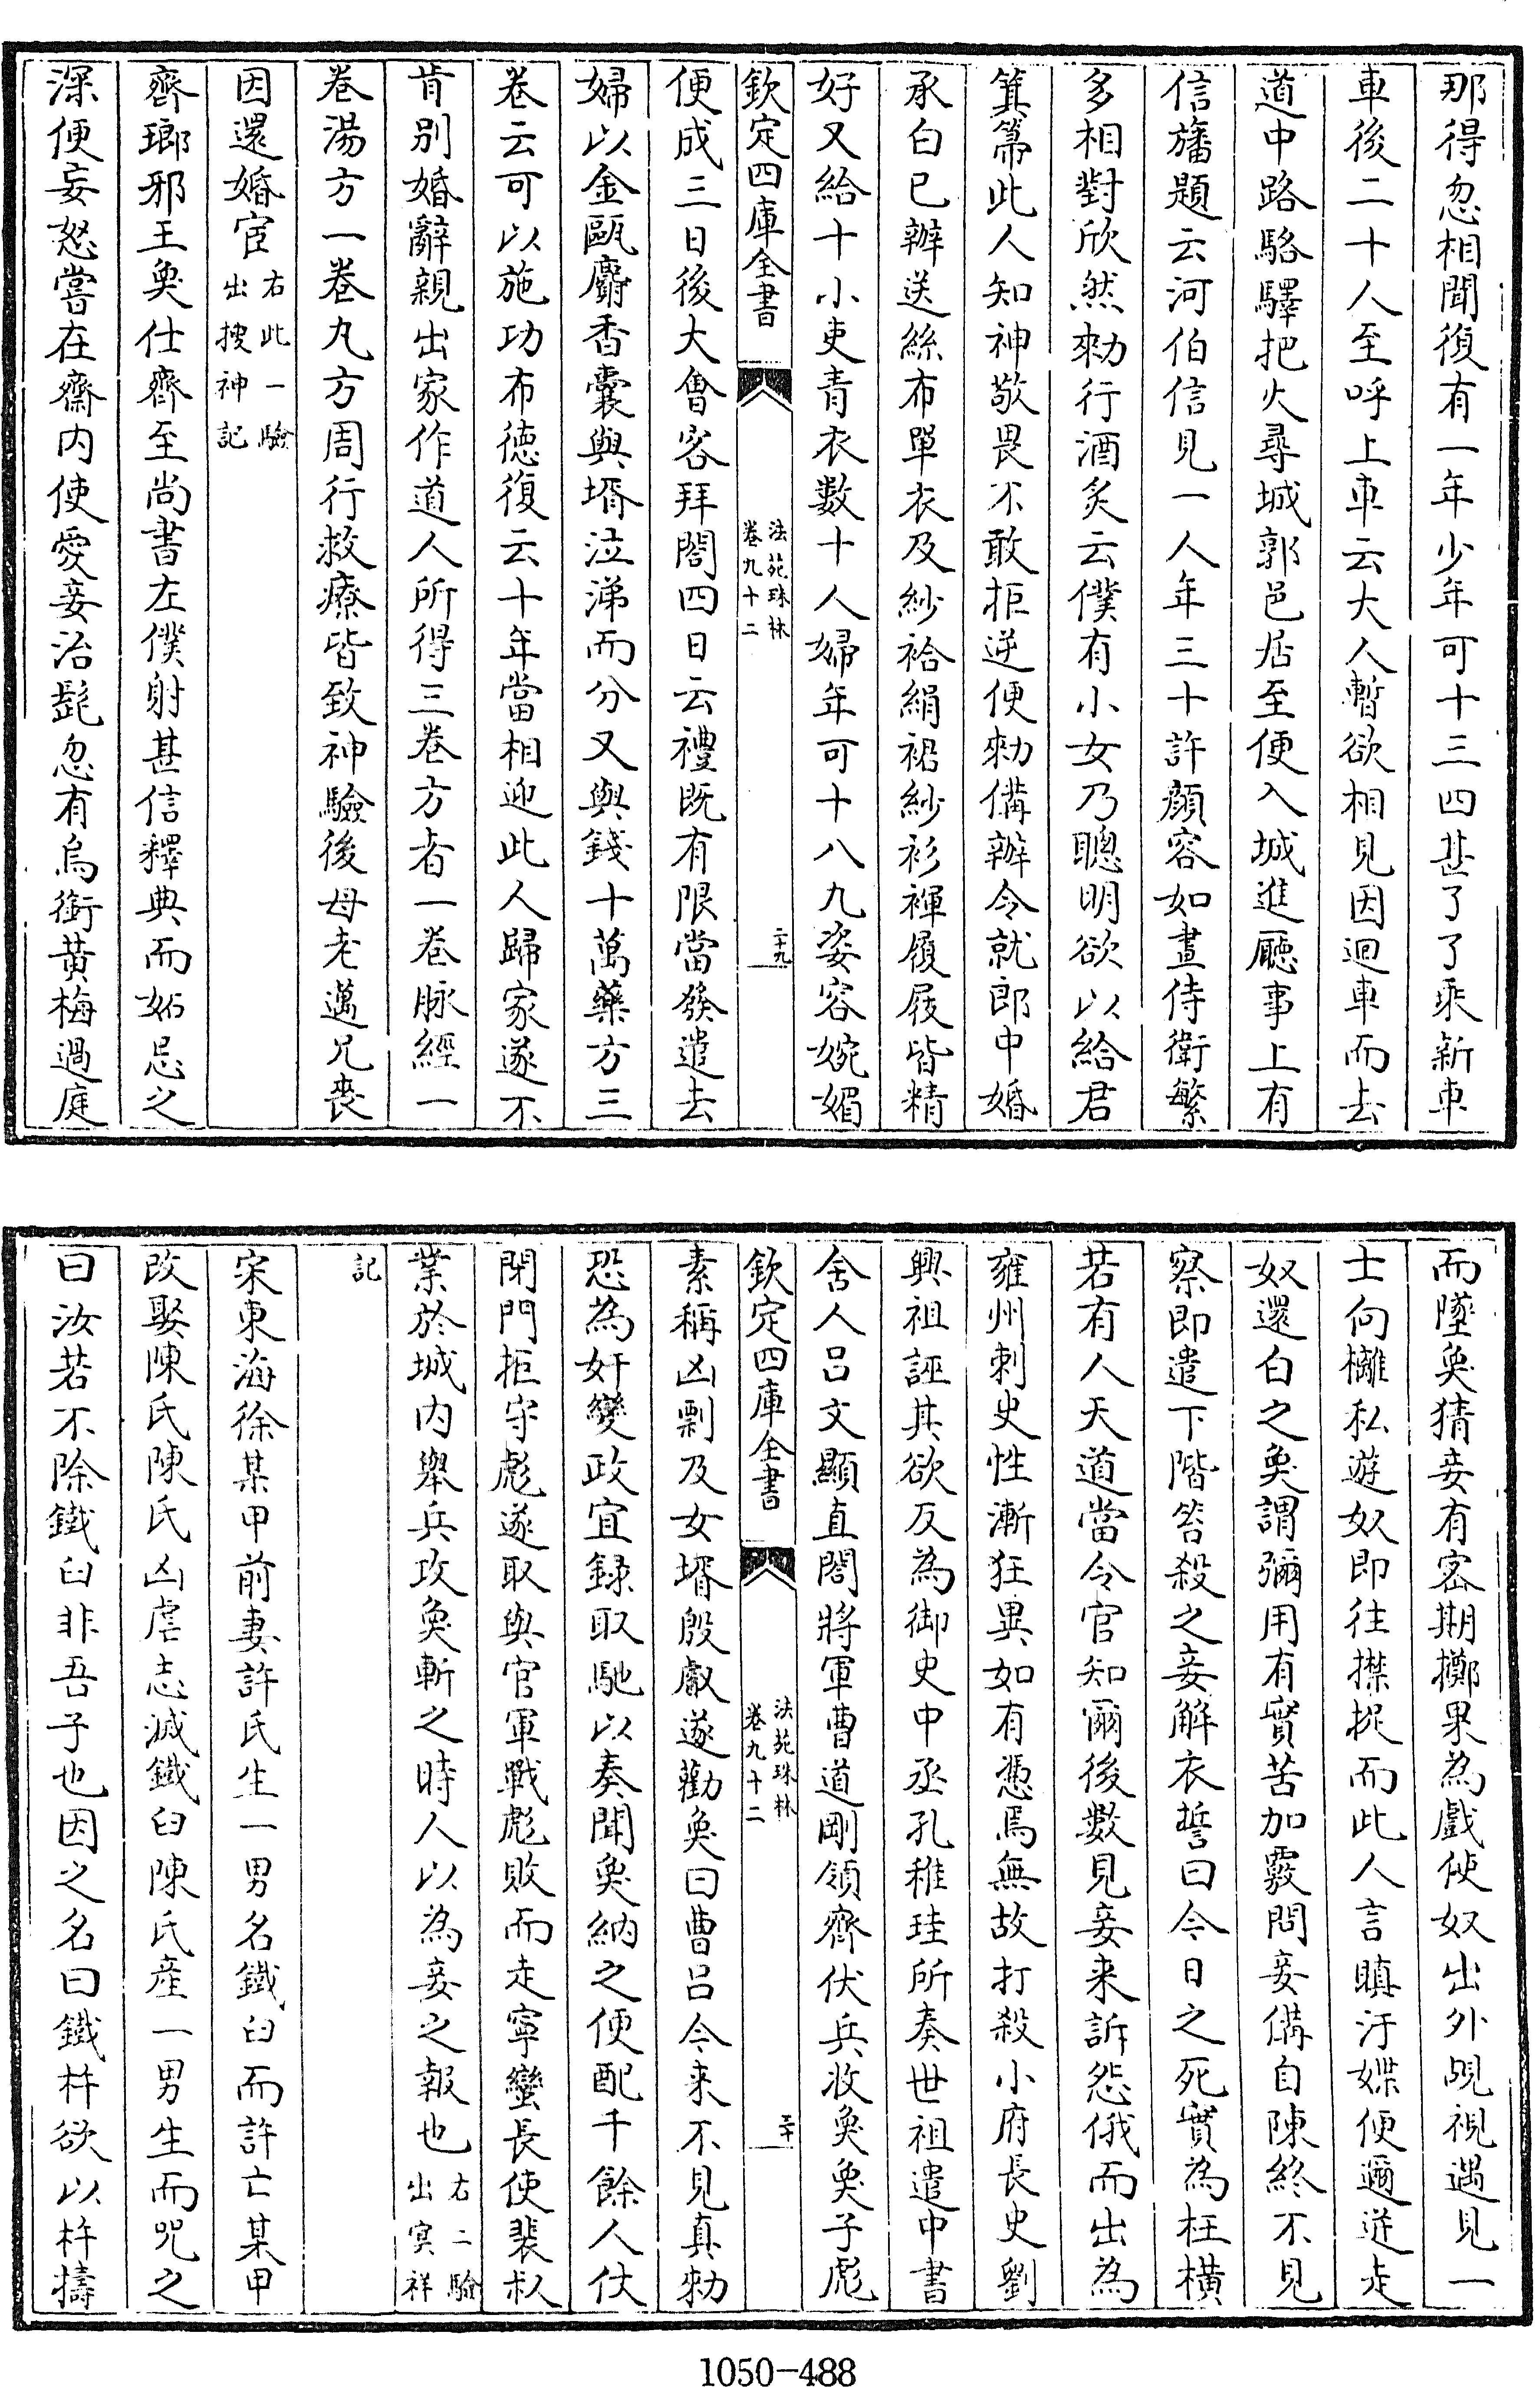 那得忽相聞復有一年少年可十三四甚了了乘新車
車後二十人至呼上車云大人暫欲相見因迴車而去
道中路駱驛把火尋城郭邑居至便入城進廳事上有
信旛題云河伯信見一人年三十許顏容如畫侍衛繁
多相對欣然勑行酒炙云僕有小女乃聰明欲以給君
箕箒此人知神敬畏不敢拒逆便勑備辦令就郎中婚
承白已辦送絲布單衣及紗袷絹裙紗衫褌履屐皆精
好又給十小吏青衣數十人婦年可十八九姿容婉媚
欽定四庫全書
法苑珠林
卷九十二
二十九
便成三日後大會客拜閤四日云禮既有限當發遣去
婦以金甌麝香囊與壻泣涕而分又與錢十萬藥方三
卷云可以施功布德復云十年當相迎此人歸家遂不
肯別婚辭親出家作道人所得三卷方者一卷脉經一
卷湯方一卷丸方周行救療皆致神驗後母老邁兄喪
因還婚宦右此一驗
出搜神記
齊瑯邪王奐仕齊至尚書左僕射甚信釋典而妬忌之
深便妄怒嘗在齋内使愛妾治髭忽有烏銜黄梅過庭
而墜奐猜妾有密期擲果為戲使奴出外覘視遇見一
士向籬私遊奴即往㩒捉而此人言瞋汙媟便邇迸走
奴還白之奐謂彌用有實苦加覈問妾備自陳終不見
察即遣下階笞殺之妾解衣誓曰今日之死實為枉横
若有人天道當令官知爾後數見妾来訴怨俄而出為
雍州刺史性漸狂異如有憑焉無故打殺小府長史劉
興祖誣其欲反為御史中丞孔稚珪所奏世祖遣中書
舍人吕文顯直閤將軍曹道剛領齊伏兵收奐奐子彪
欽定四庫全書
法苑珠林
卷九十二
三十
素稱凶剽及女壻殷叡遂勸奐曰曹吕今来不見真勑
恐為奸變政宜録取馳以奏聞奐納之便配千餘人仗
閉門拒守彪遂取與官軍戰彪敗而走寜蠻長使裴叔
業於城内舉兵攻奐斬之時人以為妾之報也右二驗
出冥祥
記
宋東海徐某甲前妻許氏生一男名鐵臼而許亡某甲
改娶陳氏陳氏凶虐志滅鐵臼陳氏產一男生而咒之
曰汝若不除鐵臼非吾子也因之名曰鐵杵欲以杵擣
1050-488